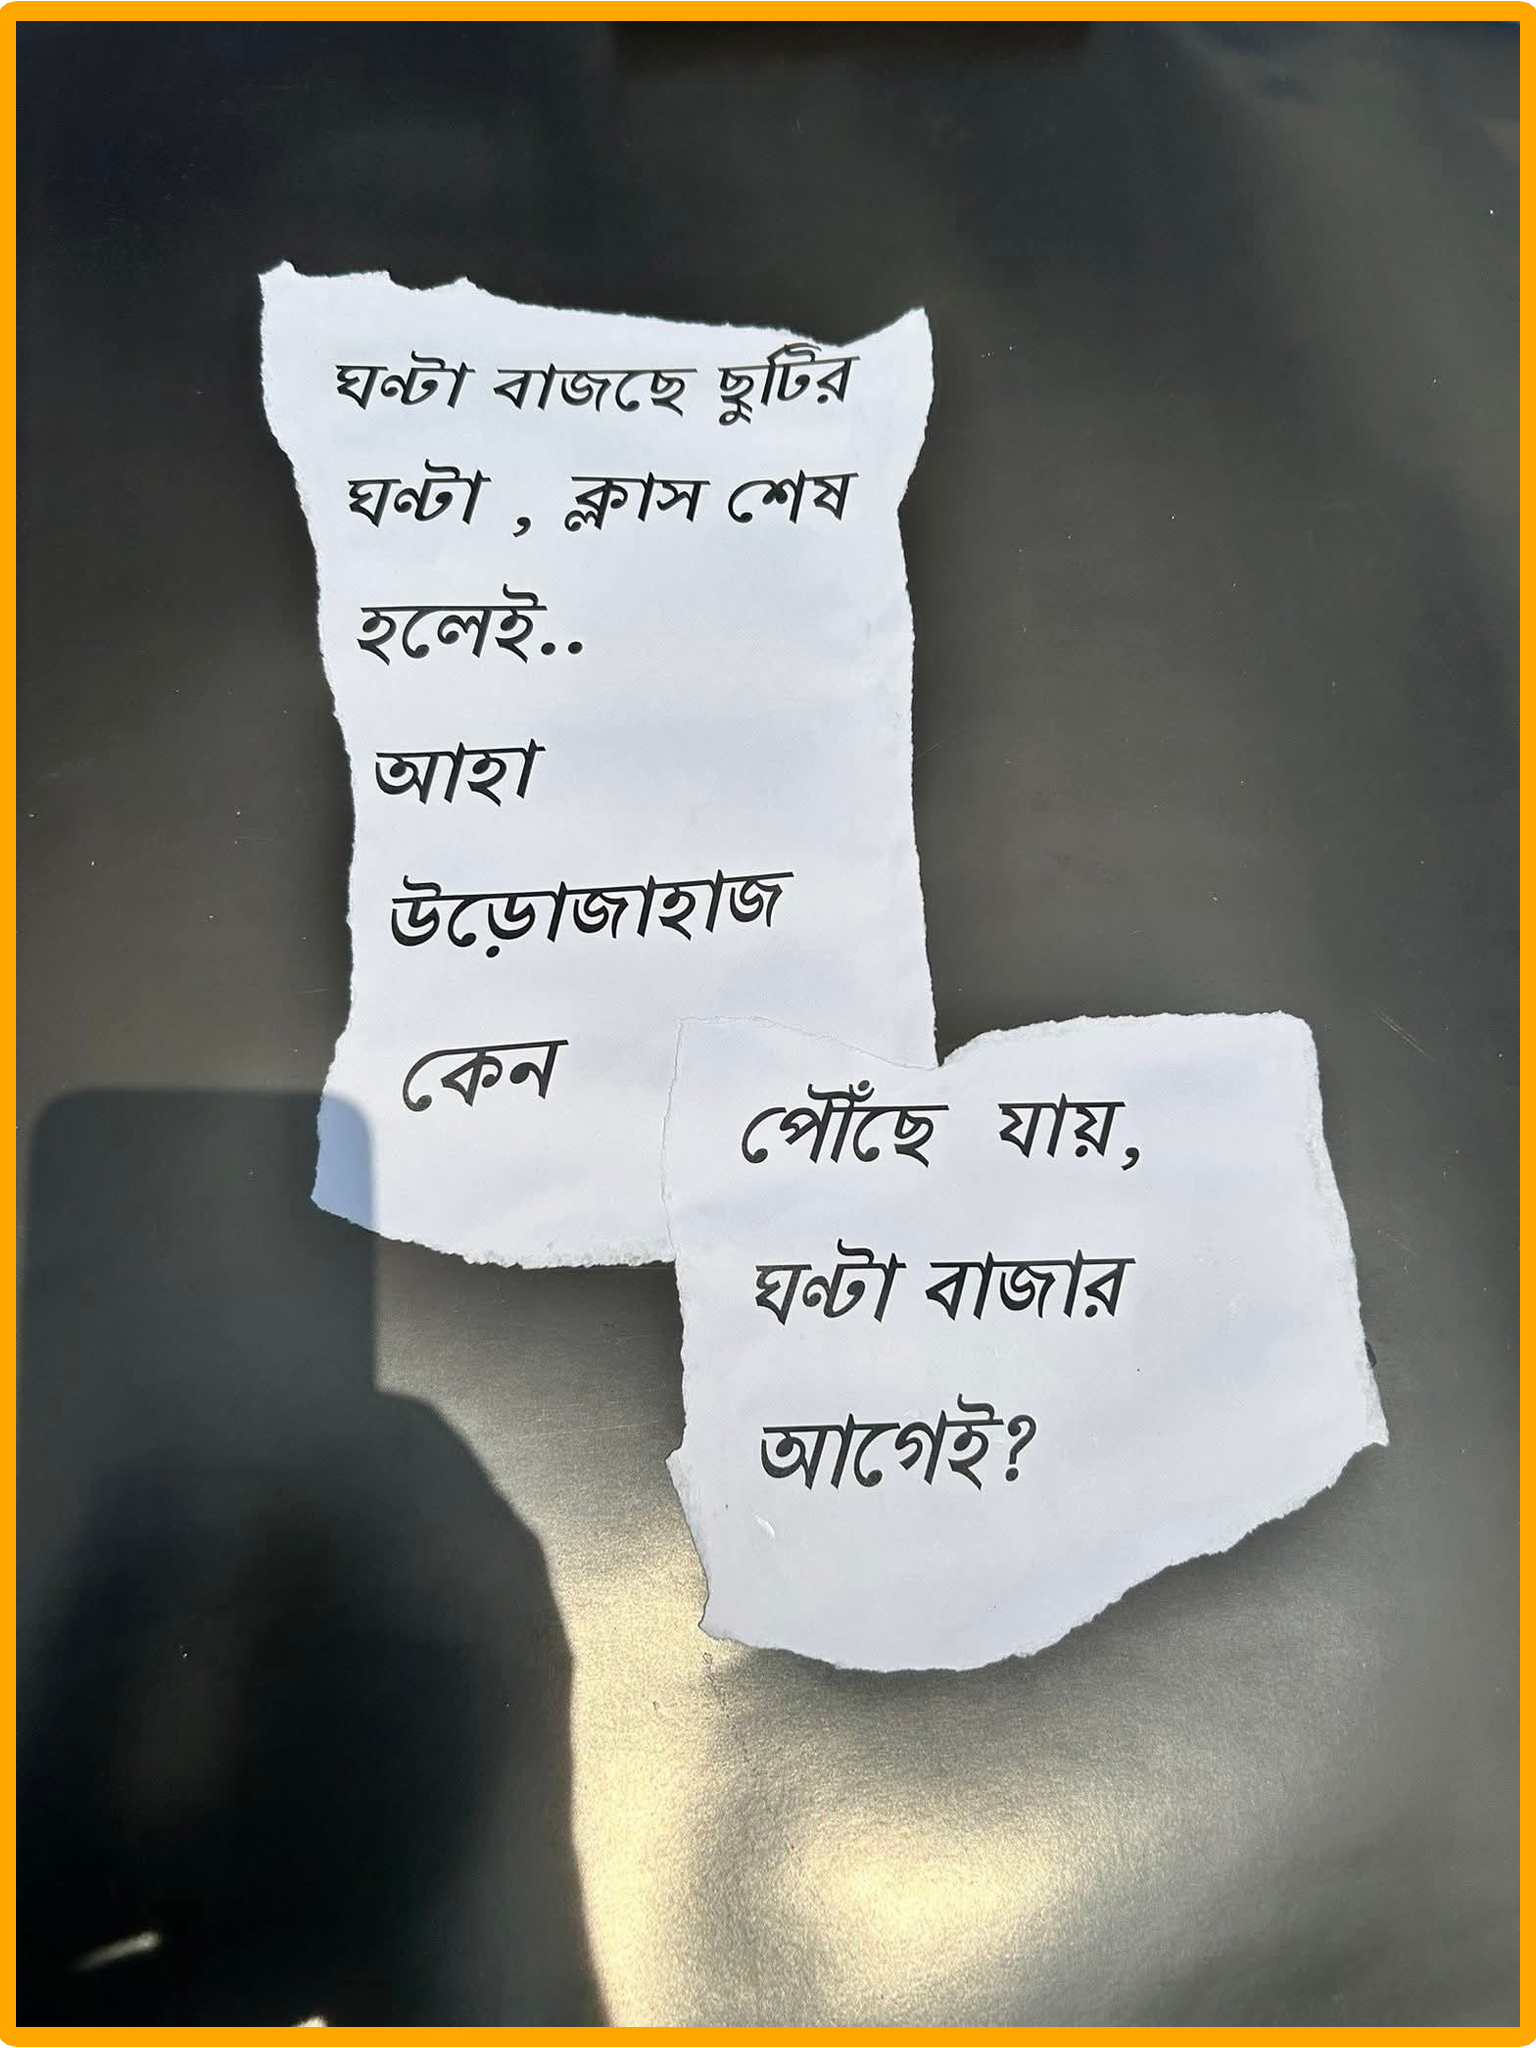 ঘণ্টা বাজছে ছুটির
ঘণ্টা , ক্লাস শেষ
হলেই..
আহা
উড়োজাহাজ
কেন
পৌঁছে যায়,
ঘণ্টা বাজার
আগেই?